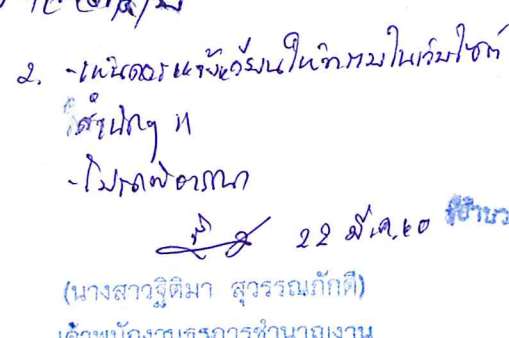 2. -เห็นควรแจ้งเวียนให้ทราบในเว็บไซต์
สำนักฯ
-โปรดพิจารณา
22 มี.ค. 60
(นางสาวฐิติมา สุวรรณภักดี)
เจ้าพนักงานธุรการชำนาญงาน